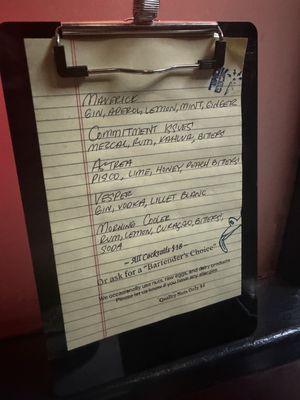 MAVERICK
GIN, APEROL, LEMON, MINT, GINGER
COMMITMENT ISSUES
MEZCAL, RUM, KAHLUA, BITTERS
ASTREA
PISCO, LIME, HONEY, PEACH BITTERS
VESPER
GIN, VODKA, LILLET BLANC
MORNING COOLER
RUM, LEMON, CURAÇAO, BITTERS,
SODA
~ All Cocktails $18 ~
Or ask for a "Bartender's Choice"
We occasionally use nuts, raw eggs, and dairy products
Please let us know if you have any allergies.
Quality Nuts Only $4